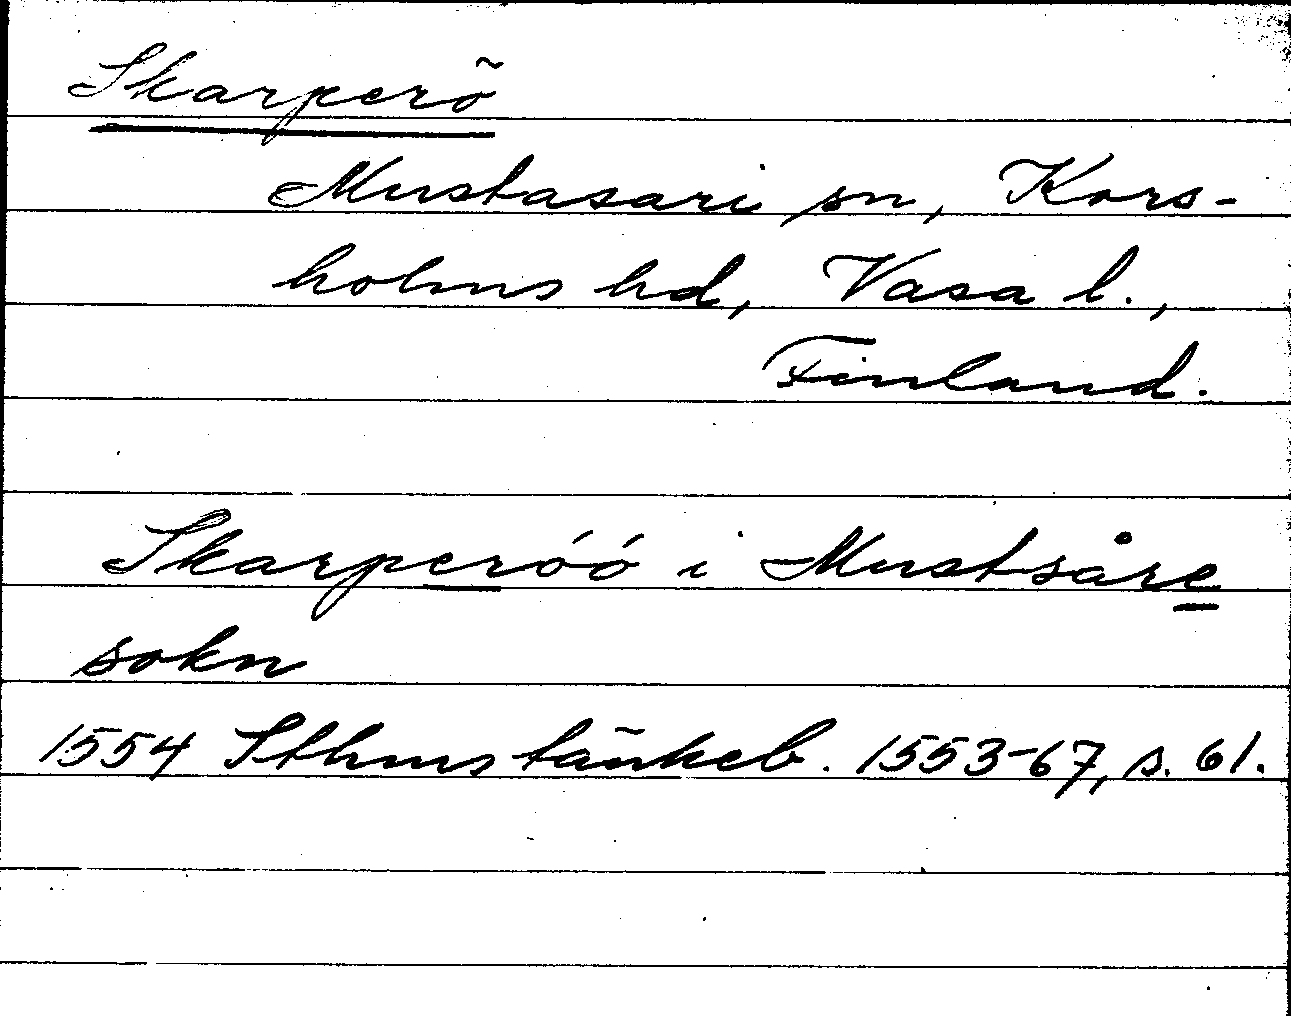 Skarperö
Mustasari sn, Kors-
holms hd, Vasa l.,
Finland.
Skarperóó i Mustsåre
sokn
1554 Sthms tänkeb. 1553-67, s. 61.